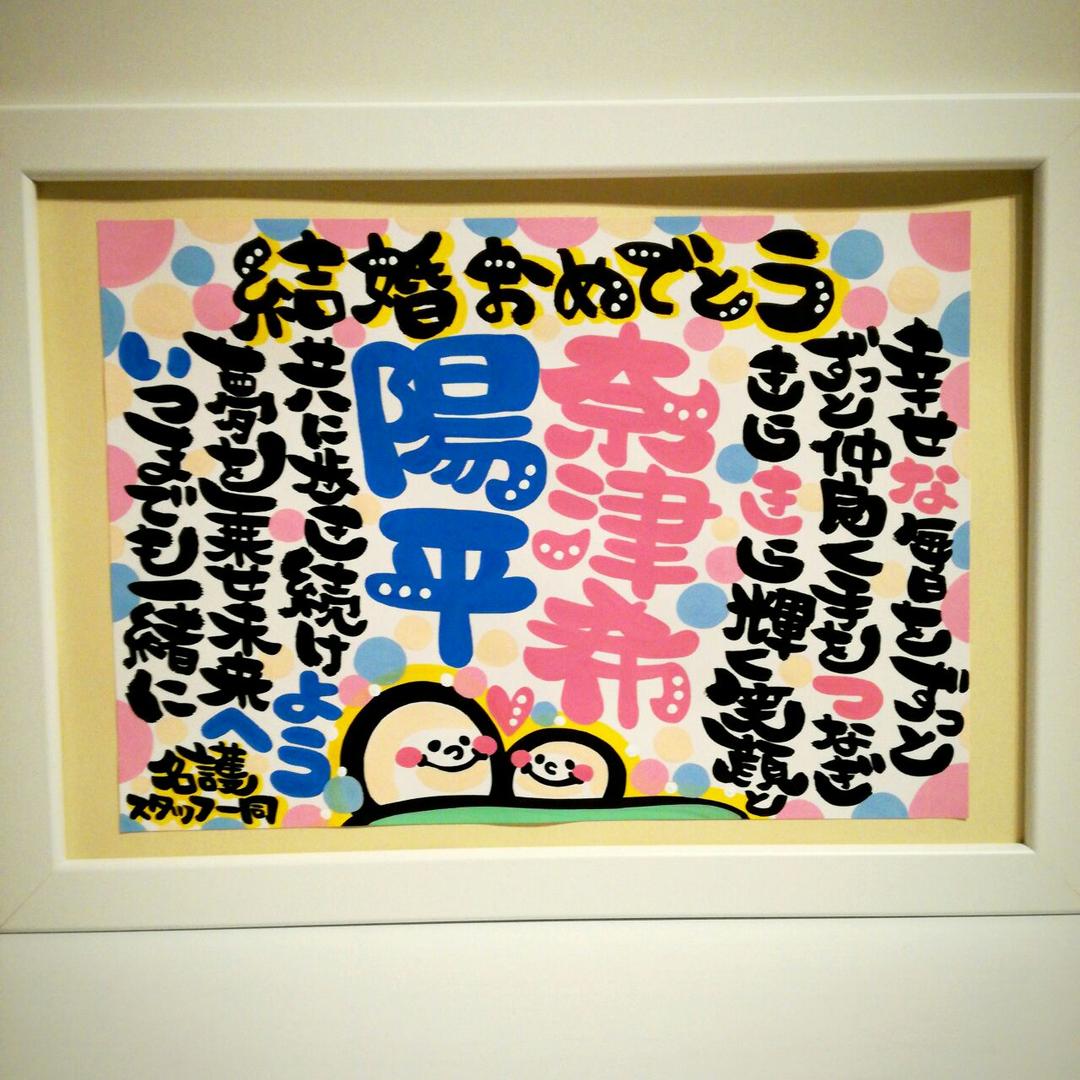 結婚おめでとう
幸せな毎日をずっと
ずっと仲良く手をつなぎ
きらきら輝く笑顔と
奈津希
陽平
共に歩き続けよう
夢を乗せ未来へ
いつまでも一緒に
名護
スタッフ一同